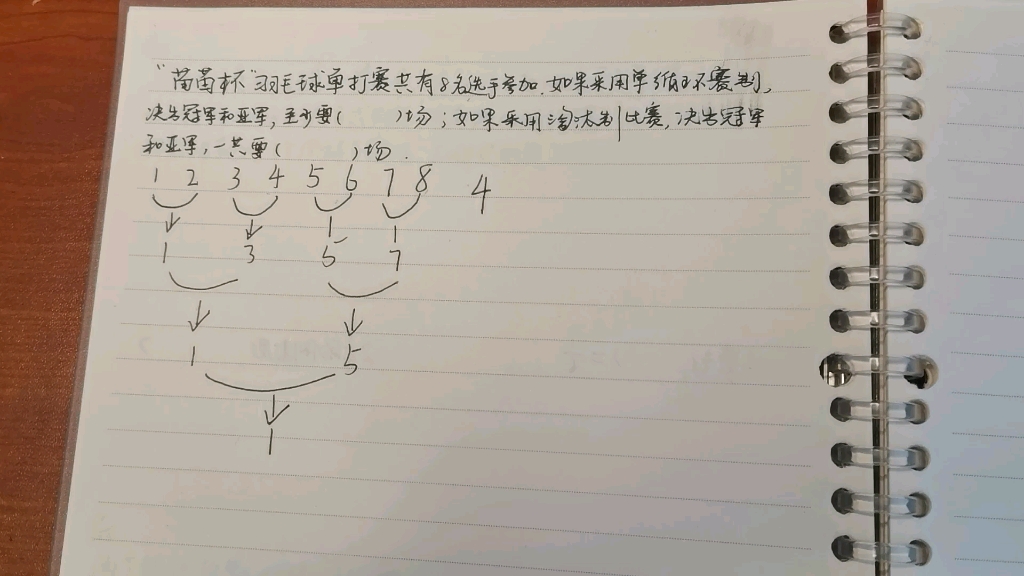 “茵茵杯”羽毛球单打赛共有8名选手参加.如果采用单循环赛制,
决出冠军和亚军,至少要(  )场;如果采用淘汰制比赛,决出冠军
和亚军,一共要(  )场.
1 2 3 4 5 6 7 8 4
1 3 5 7
1 5
1